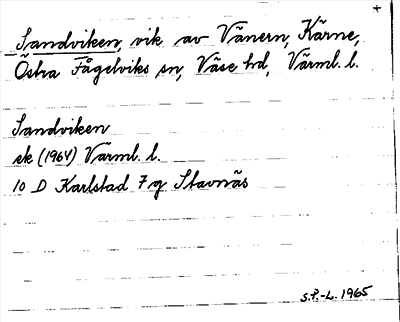 +
Sandviken, vik av Vänern, Kärne,
Östra Fågelviks sn, Väse hd, Värml. l.
Sandviken
ek (1964) Värml. l.
10 D Karlstad 7g Stavnäs
S.P.-L. 1965